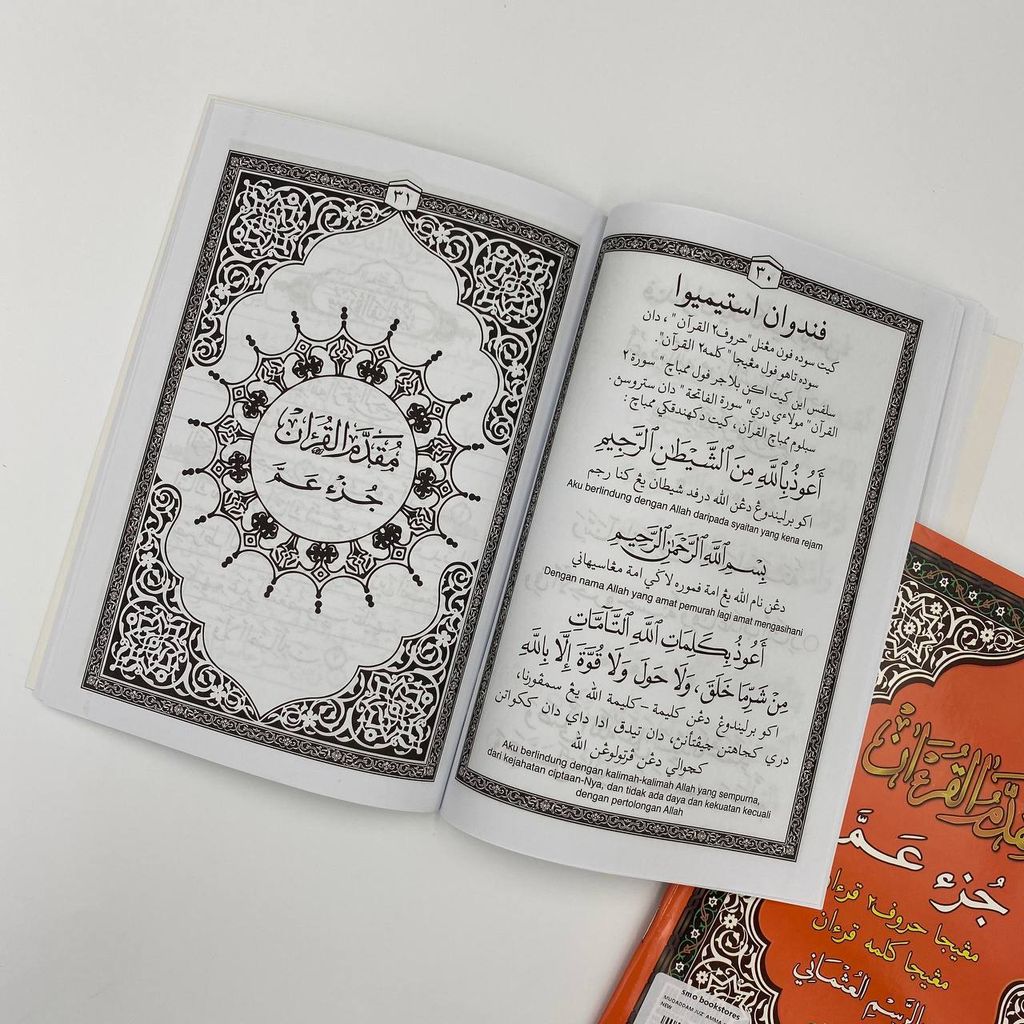 ٣٠
فندوان استيميوا
كيت سوده فون مڠنل "حروف٢ القرآن"، دان
سوده تاهو فول مڠيجا "كلمه٢ القرآن".
سلفس اين كيت اكن بلاجر فول ممباچ "سورة ٢
القرآن" مولاءي دري "سورة الفاتحة" دان ستروسڽ.
سبلوم ممباچ القرآن، كيت دكهندقكي ممباچ:
أَعُوذُ بِٱللَّهِ مِنَ ٱلشَّيْطَٰنِ ٱلرَّجِيمِ
اكو برليندوڠ دڠن الله درفد شيطان يڠ كنا رجم
Aku berlindung dengan Allah daripada syaitan yang kena rejam
بِسْمِ ٱللَّهِ ٱلرَّحْمَٰنِ ٱلرَّحِيمِ
دڠن نام الله يڠ امة فموره لاݢي امة مڠاسيهاني
Dengan nama Allah yang amat pemurah lagi amat mengasihani
أَعُوذُ بِكَلِمَاتِ ٱللَّهِ ٱلتَّآمَّاتِ
مِنْ شَرِّمَا خَلَقَ، وَلَا حَوْلَ وَلَا قُوَّةَ إِلَّا بِٱللَّهِ
اكو برليندوڠ دڠن كليمة-كليمة الله يڠ سمڤورنا،
دري كجاهتن چيڤتأنڽ، دان تيدق ادا داي دان ككواتن
كچوالي دڠن ڤرتولوڠن الله
Aku berlindung dengan kalimah-kalimah Allah yang sempurna,
dari kejahatan ciptaan-Nya, dan tidak ada daya dan kekuatan kecuali
dengan pertolongan Allah
٣١
مُقَدَّمُ الْقُرْءَانِ
جُزْءُ عَمَّ
مُقَدَّمُ الْقُرْءَانِ
جُزْءُ عَمَّ
مڠيجا حروف٢ قرءان
مڠيجا كلمه قرءان
الرَّسْمِ الْعُثْمَانِي
smo bookstores
MUQADDAM JUZ AMMA
NEW